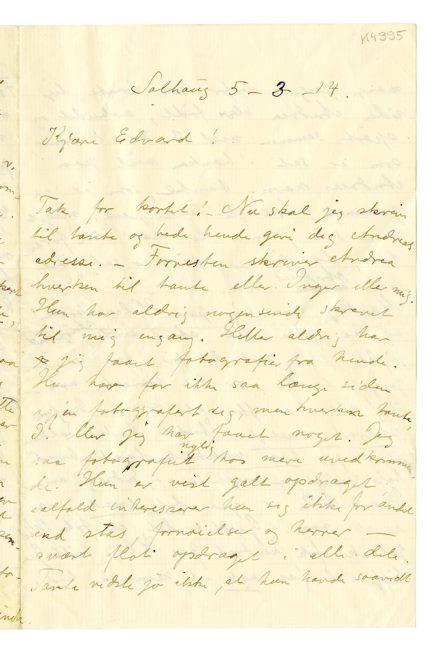 K4995
Solhaug 5 - 3 - 14.
Kjære Edvard!
Tak for kortet! - Nu skal jeg skrive
til tante og bede hende give dig Andreas
adresse. - Forresten skriver Andrea
hverken til tante eller Inger eller mig.
Hun har aldrig nogensinde skrevet
til mig engang. Heller aldrig har
jeg faaet fotografier fra hende.
Hun har for ikke saa længe siden
igjen fotografert sig, men hverken tante,
I. eller jeg har faaet noget. Jeg
saa fotografiet nylig hos mere uvedkommen-
de. Hun er vist galt opdraget,
ialfald interesserer hun sig ikke for andet
end stas, fornøielser og herrer —
svært flot opdraget i alle dele.
Tante vidste jo ikke, at hun havde saavidt